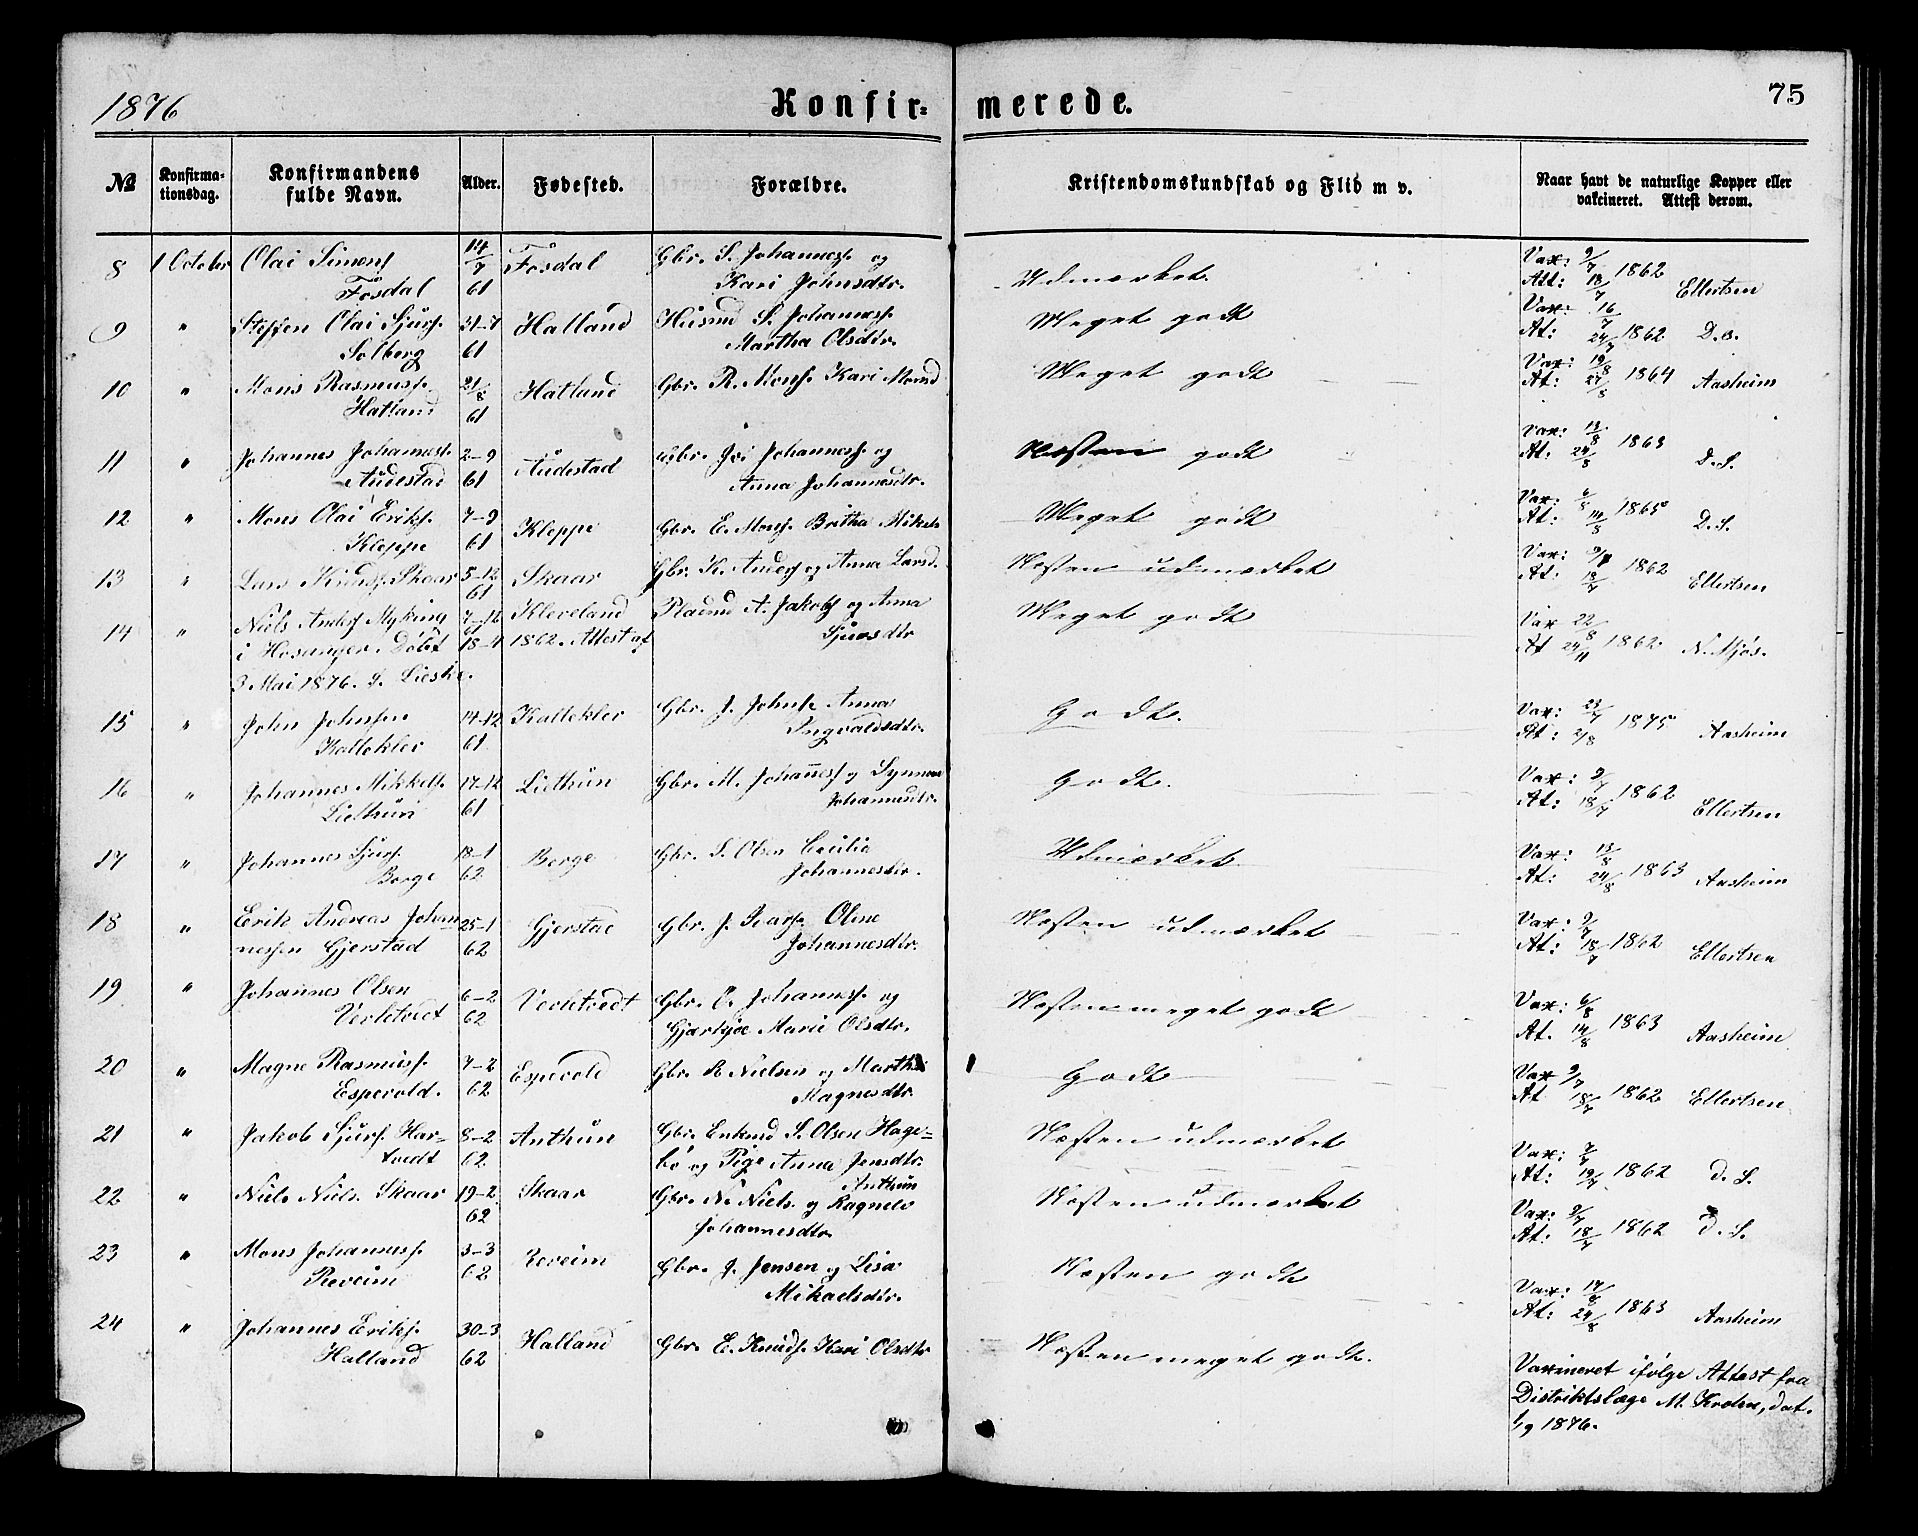 1876 Konfir- merede. 75
№ Konfirma- tionsdag. Konfirmandens fulde Navn. Alder. Fødested. Forældre. Kristendomskundskab og Flid m v. Naar havt de naturlige Kopper eller vakcineret. Attest derom.
8 1 October Olai Simons. 14/7 Fosdal Gbr. S. Johanness. og Udmærket. Vax: 9/7 1862
Fosdal 61 Kari Johnsdtr. Att: 18/7 Ellertsen
9 " Steffen Olai Sjurs. 31-7 Halland Husmd S. Johanness. Meget godt Vax: 16/7
Solberg 61 Martha Olsdtr. At: 24/7 1862 D. o.
10 " Mons Rasmuss. 21/8 Hatland Gbr. R. Mons. Kari Monsd Meget godt Vax: 19/8 1864
Hatland 61 At: 27/8 Aasheim
11 " Johannes Johanness. 2-9 Audestad Gbr. Johanness. og Næsten godt Vax: 13/8 1863
Audestad 61 Anna Johannesdtr. At: 24/8 D. S.
12 " Mons Olai Eriks. 7-9 Kleppe Gbr. E. Mons. Britha Mikels Meget godt Vax: 6/8 1865
Kleppe 61 At: 14/8 D. S.
13 " Lars Knuds. Skaar 5-12 Skaar Gbr. K. Anders. og Anna Larsd. Næsten udmærket Vax: 9/7 1862
61 At: 18/7 Ellertsen
14 " Niels Anders. Myking 7-12 Kleveland Pladsmd A. Jakobs. og Anna Meget godt Vax 22/8
i Hosanger. Döbt 18-4 1862. Attest af Sjursdtr At 29/11 1862 N. Mjös.
3 Mai 1876. S. Lieske.
15 " John Johnsen 14-12 Kallekler Gbr. J. Johns. Anna Godt. Vax: 23/7 1875
Kallekler 61 Ingvaldsdtr. At: 2/8 Aasheim
16 " Johannes Mikkels. 17-12 Liethun Gbr. M. Johanness. og Synneva Godt. Vax: 9/7 1862
Liethun 61 Johannesdtr. At: 18/7 Ellertsen
17 " Johannes Sjurs. 18-1 Berge Gbr. S. Olsen Cecilie Udmærket Vax: 13/8
Berge 62 Johannesdtr. At: 24/8 1863 Aasheim
18 " Erik Andreas Johan- 25-1 Gjerstad Gbr. J. Ivars. Oline Næsten udmærket Vax: 9/7
nessen Gjerstad 62 Johannesdtr. At: 18/7 1862 Ellertsen
19 " Johannes Olsen 6-2 Verletvedt Gbr. O. Johanness. og Næsten meget godt Vax: 6/8 1863
Verletvedt 62 Marie Olsdtr. At. 14/8 Aasheim
20 " Magne Rasmuss. 7-2 Espevold Gbr. R Nielsen og Martha Godt Vax 9/7
Espevold. 62 Magnesdtr. At 18/7 1862 Ellertsen
21 " Jakob Sjurs. Har- 8-2 Anthun Gbr. Enkmd S. Olsen Hage- Næsten udmærket Vax: 7/7
tvedt 62 bö og Pige Anna Jensdtr. At: 19/7 1862 d. S.
Anthun
22 " Niels Niels. Skaar 19-2 Skaar Gbr. N. Niels. og Ragnele Næsten udmærket Vax: 9/7
62 Johannesdtr. At: 18/7 1862 d. S.
23 " Mons Johanness. 3-3 Reveim Gbr. J. Jensen og Lisa Næsten godt Vax: 14/8
Reveim 62 Mikaelsdtr. At: 24/8 1863 Aasheim
24 " Johannes Eriks. 30-3 Halland Gbr. E. Knuds. Kari Olsdtr Næsten meget godt.
Halland 62
Vaxineret ifölge Attest fra
Distriktslæge M. Krohn, dat.
1/9 1876.